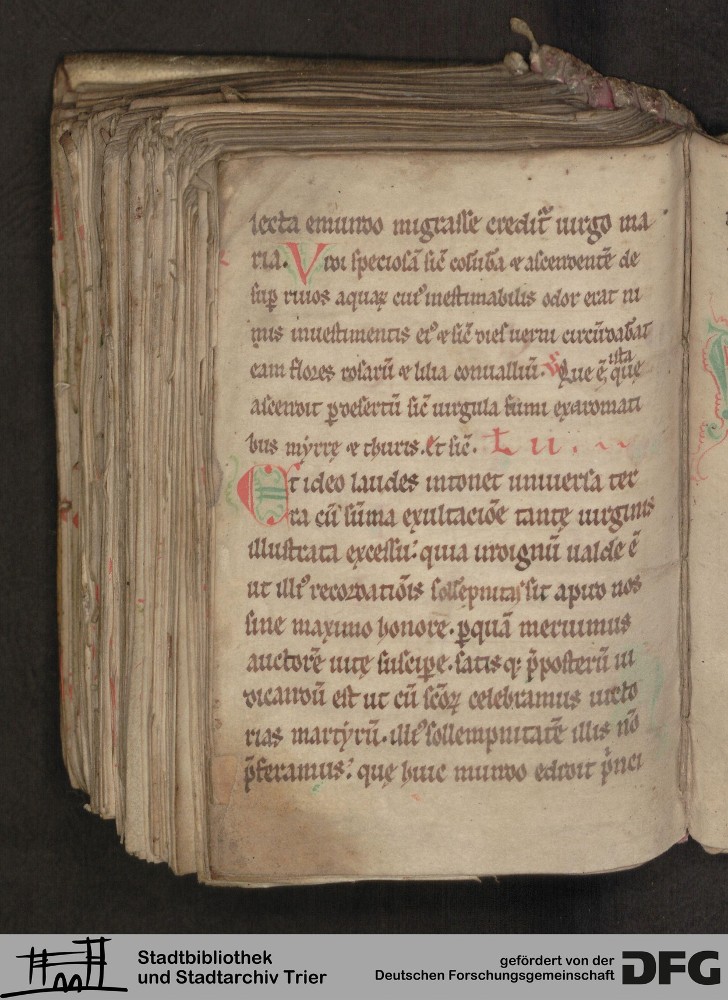 lecta emundo migrasse creditͬ uirgo ma
ria. Vidi speciosā sic̄ colūbā ⁊ ascendentē de
sup̄ riuos aquaꝝ cuiꝰ inestimabilis odor erat ni
mis inuestimentis eiꝰ ⁊ sic̄ dies uerni circūdabāt
eam flores rosarū ⁊ lilia conualliū. ℣ Que ē ista quę
ascendit ꝑdesertū sic̄ uirgula fumi exaromati
bus mýrrę ⁊ thuris. Et sic̄. L̄ II.
Et ideo laudes intonet uniuersa ter
ra cū sūma exultaciōe tantę uirginis
illustrata excessu: quia indignū ualde ē
ut illiꝰ recordatiōis sollēpnitas sit apud nos
sine maximo honore. ꝑquā meruimus
auctorē uitę suscipe. satis q; p̄posterū iu
dicandū est ut cū sc̄oꝝ celebramus uicto
rias martýrū. illiꝰ sollempnitatē illis nō
p̄feramus: quę huic mundo edidit p̄nci
Stadtbibliothek
und Stadtarchiv Trier
gefördert von der
Deutschen Forschungsgemeinschaft
DFG